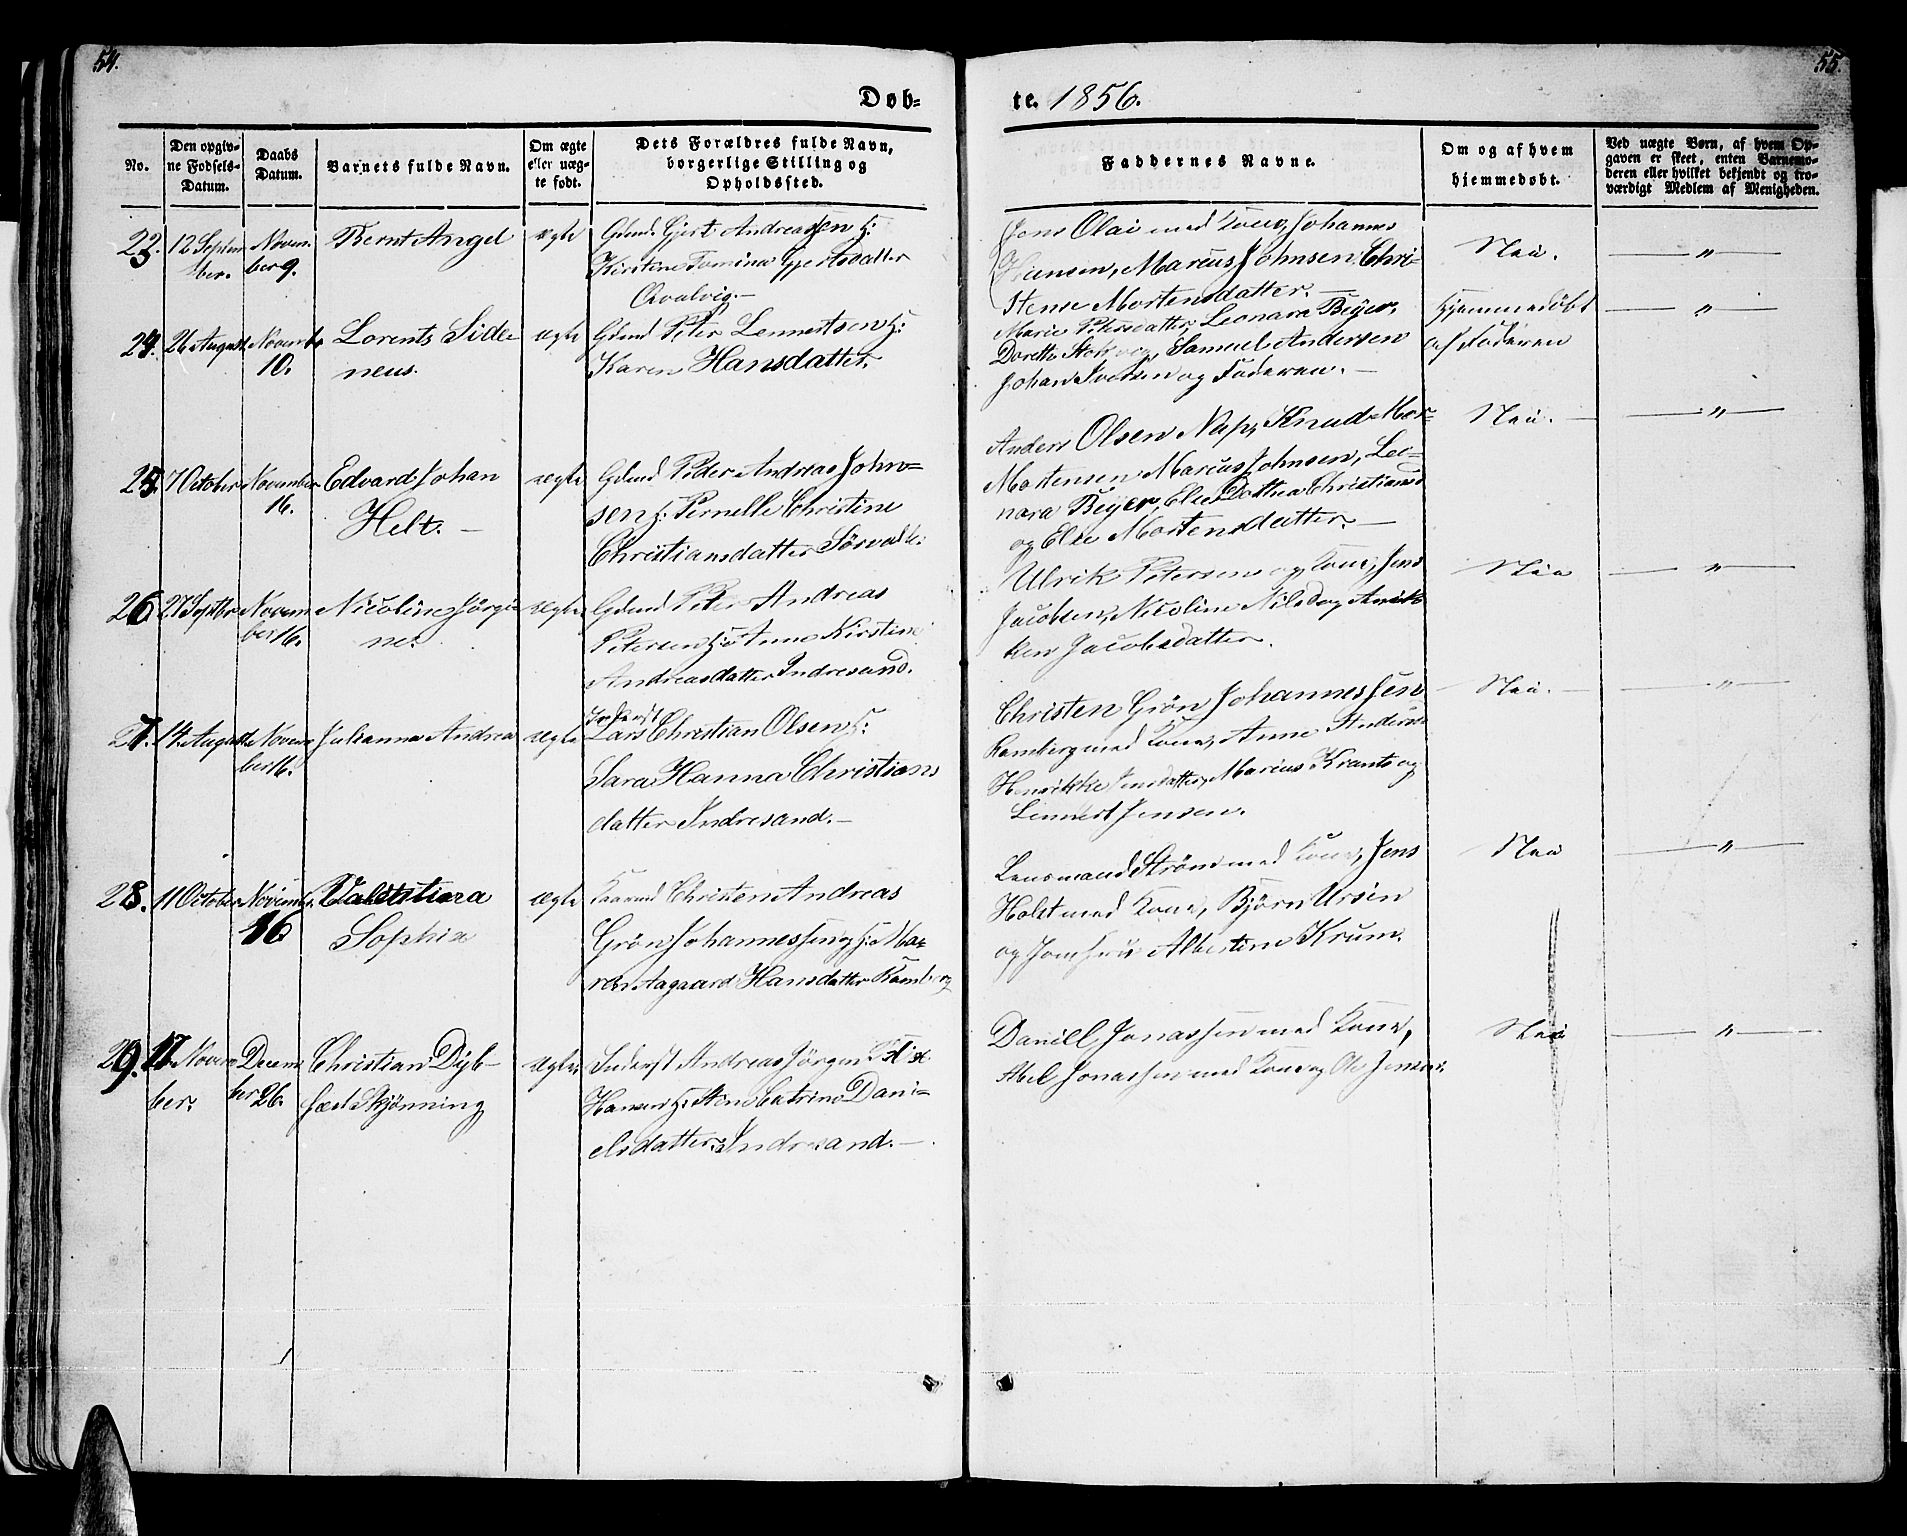 54.
55.
Døb-
te. 1856.
No.
Den opgiv-
ne Fødsels-
Datum.
Daabs
Datum.
Barnets fulde Navn.
Om ægte
eller uæg-
te født.
Dets Forældres fulde Navn,
borgerlige Stilling og
Opholdssted.
Faddernes Navne.
Om og af hvem
hjemmedøbt.
Ved uægte Børn, af hvem Op-
gaven er skeet, enten Barnemo-
deren eller hvilket bekjendt og tro-
værdigt Medlem af Menigheden.
23. 12 Septem
ber. Novem
ber 9. Bernt Angel ægte
Gdmd Gjert Andreassen H:
Kirstine Tomina Gjertsdatter
Qvalvig.—
Jens Olai med Kone, Johannes
Hansen, Marcus Johnsen, Chri-
stense Mortensdatter.—
Nei. — " —
24. 26 August Novemb.
10. Lorents Side-
neus. ægte
Gdmd Peter Lennertsen H:
Karen Hansdatter.
Marie Petersdatter, Leonara Beyer,
Dorethe Samuel Andersen
Johan Iversen og Faderen.—
Hjemmedøbt
af Faderen — " —
25. 7 October November
16. Edvard Johan
Helt.— ægte
Gdmd Peder Andreas John-
sen H: Pernelle Christine
Christiansdatter
Anders Olsen Nap, Knud Mor-
Mortensen Marcus Johnsen, Leo-
nara Beyer, Else Dothea Christiansd
og Else Mortensdatter.—
Nei. — " —
26. 27 Septbr Novem
ber 16. Nicoline Jørgi-
ne. ægte
Gdmd Peter Andreas
Petersen H: Anne Kirstine
Andreasdatter Indresand.
Ulrik Petersen og Kone, Jens
Jacobsen, Nicoline Nilsd og Anik-
ken Jacobsdatter.
Nei — " —
27. 14 August Novem
ber 16. Julianna Andrea ægte
Inderst
Lars Christian Olsen H:
Sara Hanna Christians
datter Indresand.—
Christen Grøn Johannessen
Ramberg med Kone, Anne Andersd
Henrikke Jensdatter, Marius Krants og
Lennert Jensen.
Nei. — " —
28. 11 October November
16
Sophia ægte
Christen Andreas
Grøn Johannessen H: Ma-
ren Aagaard Hansdatter Ramberg
Lensmand Strøm med Kone, Jens
Holst med Kone, Bjørn Ursin
og Jomfrue Albertine Krum.
Nei — " —
29. 17 Novem
ber. Decem
ber 26. Christian Dyb-
fæst Skjønning ægte
Inderst Andreas Jørgen
Hansen H: Stine Catrine Dani-
elsdatter Indresand.—
Daniell Jonassen med Kone,
Abel Jonassen med Kone og Ole Jensen.
Nei — " —